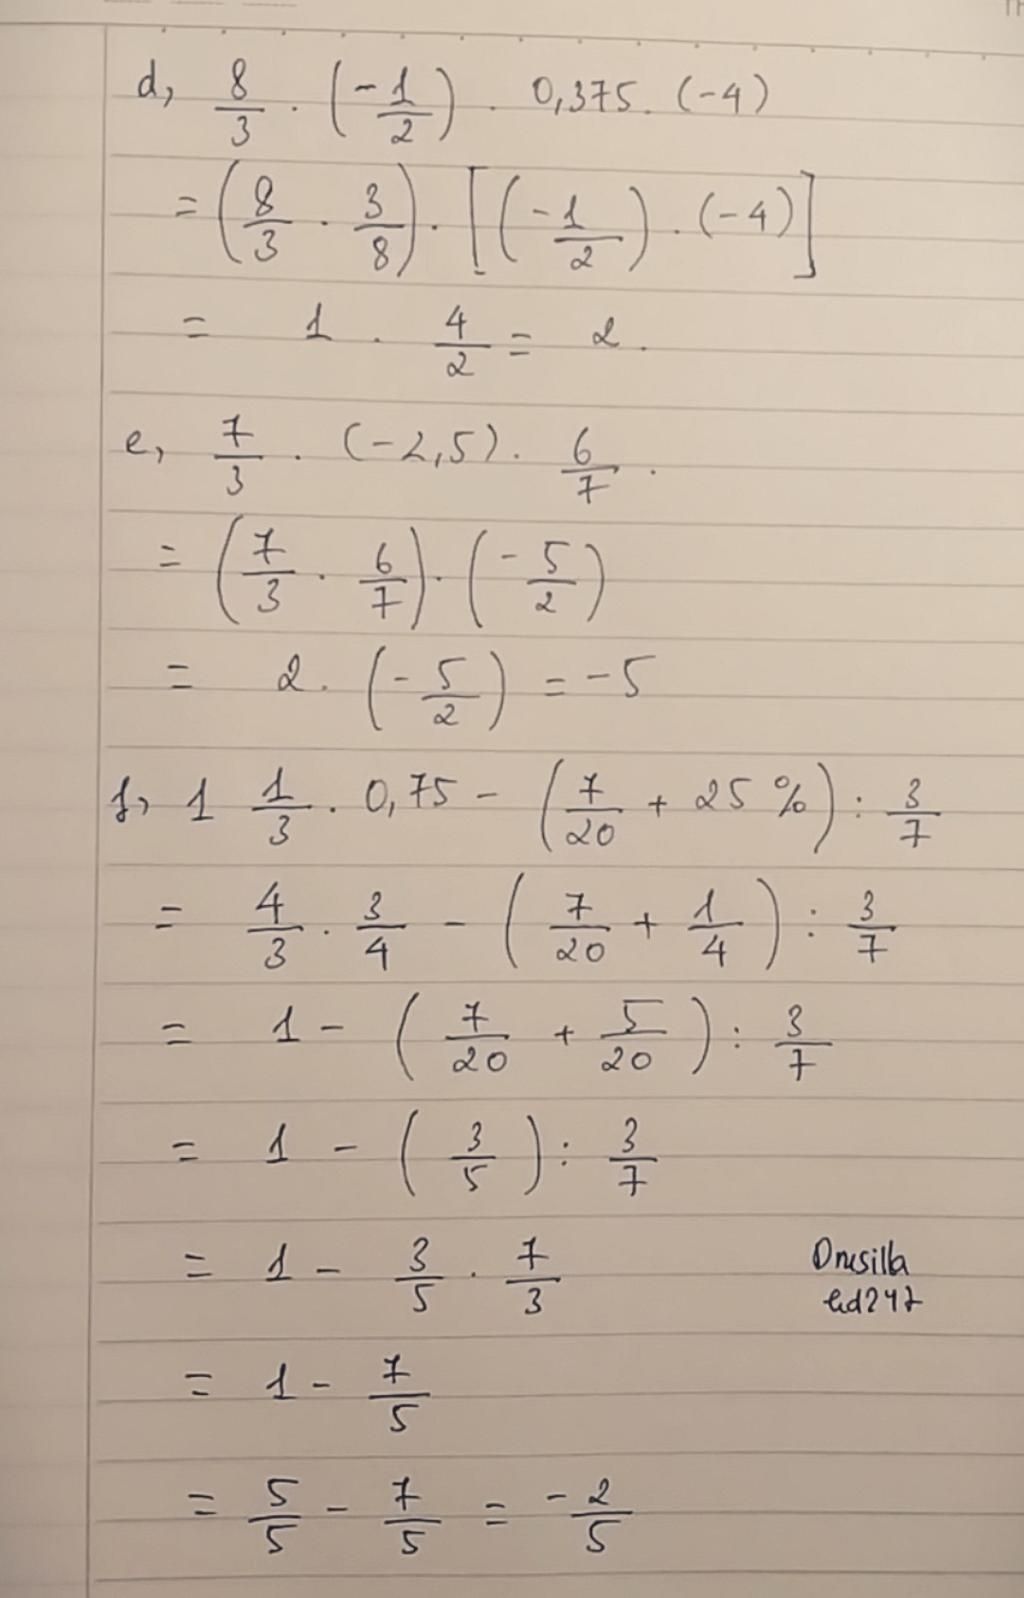 d, 8/3 . (-1/2) . 0,375. (-4)
= (8/3 . 3/8) . [(-1/2) . (-4)]
= 1 . 4/2 = 2.
e, 7/3 . (-2,5). 6/7 .
= (7/3 . 6/7) . (-5/2)
= 2. (-5/2) = -5
f, 1 1/3 . 0,75 - (7/20 + 25 %) : 3/7
= 4/3 . 3/4 - (7/20 + 1/4) : 3/7
= 1 - (7/20 + 5/20) : 3/7
= 1 - (3/5) : 3/7
= 1 - 3/5 . 7/3
Drusilla
= 1 - 7/5
= 5/5 - 7/5 = -2/5